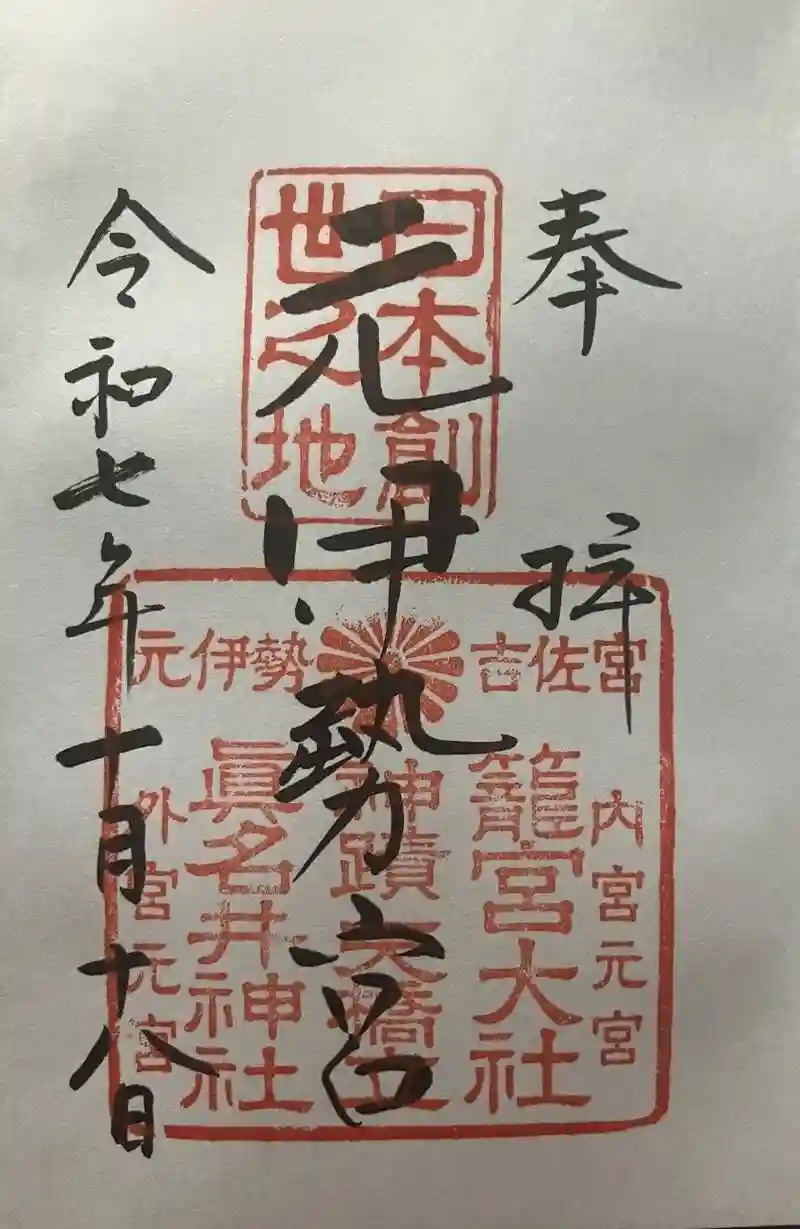 奉拝
元伊勢宮
令和七年十月十八日
日本創
世之地
吉佐宮
元伊勢
内宮元宮
籠宮大社
神蹟天橋立
眞名井神社
外宮元宮